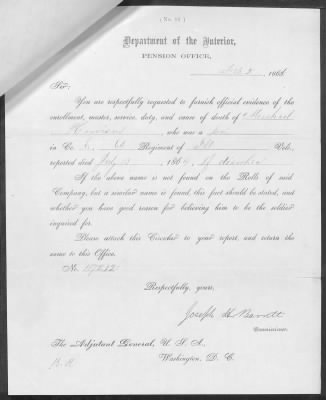 ( No. 10 )
Department of the Interior,
PENSION OFFICE,
1865
Sir:
You are respectfully requested to furnish official evidence of the
enrollment, muster, service, duty, and cause of death of Michael
who was a
in Co. Regiment of Vols.
reported died July 186 of
If the above name is not found on the Rolls of said
Company, but a similar name is found, this fact should be stated, and
whether you have good reason for believing him to be the soldier
inquired for.
Please attach this Circular to your report, and return the
same to this Office.
No.
Respectfully, yours,
Joseph H Barrett
Commissioner.
The Adjutant General, U. S. A.
Washington, D. C.